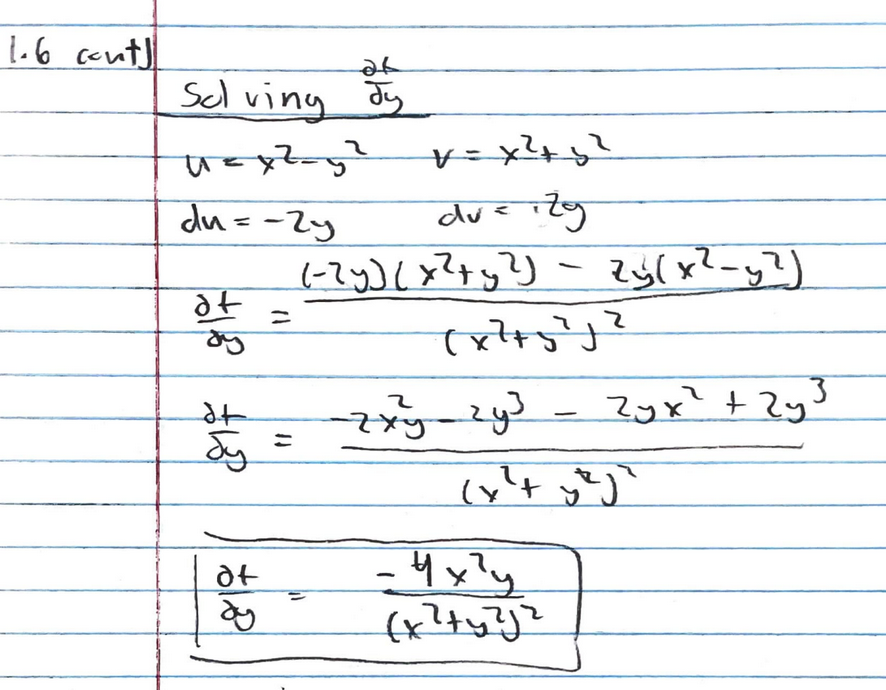 1.6 cont)
Solving ∂f/∂y
u = x² - y² v = x² + y²
du = -2y dv = 2y
∂f/∂y = ((-2y)(x² + y²) - 2y(x² - y²))/(x² + y²)²
∂f/∂y = (-2x²y - 2y³ - 2yx² + 2y³)/(x² + y²)²
∂f/∂y = -4x²y/(x² + y²)²